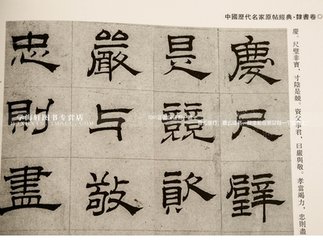 中國歷代名家原帖經典·隸書卷
慶尺璧
是競資
嚴与敬
忠則盡
慶。尺璧非寶，寸陰是競。資父事君，曰嚴與敬。孝當竭力，忠則盡